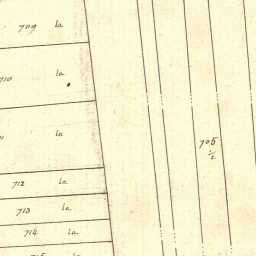 709 la
710 la
la
706
1/2
712 la
713 la
714 la
715 la